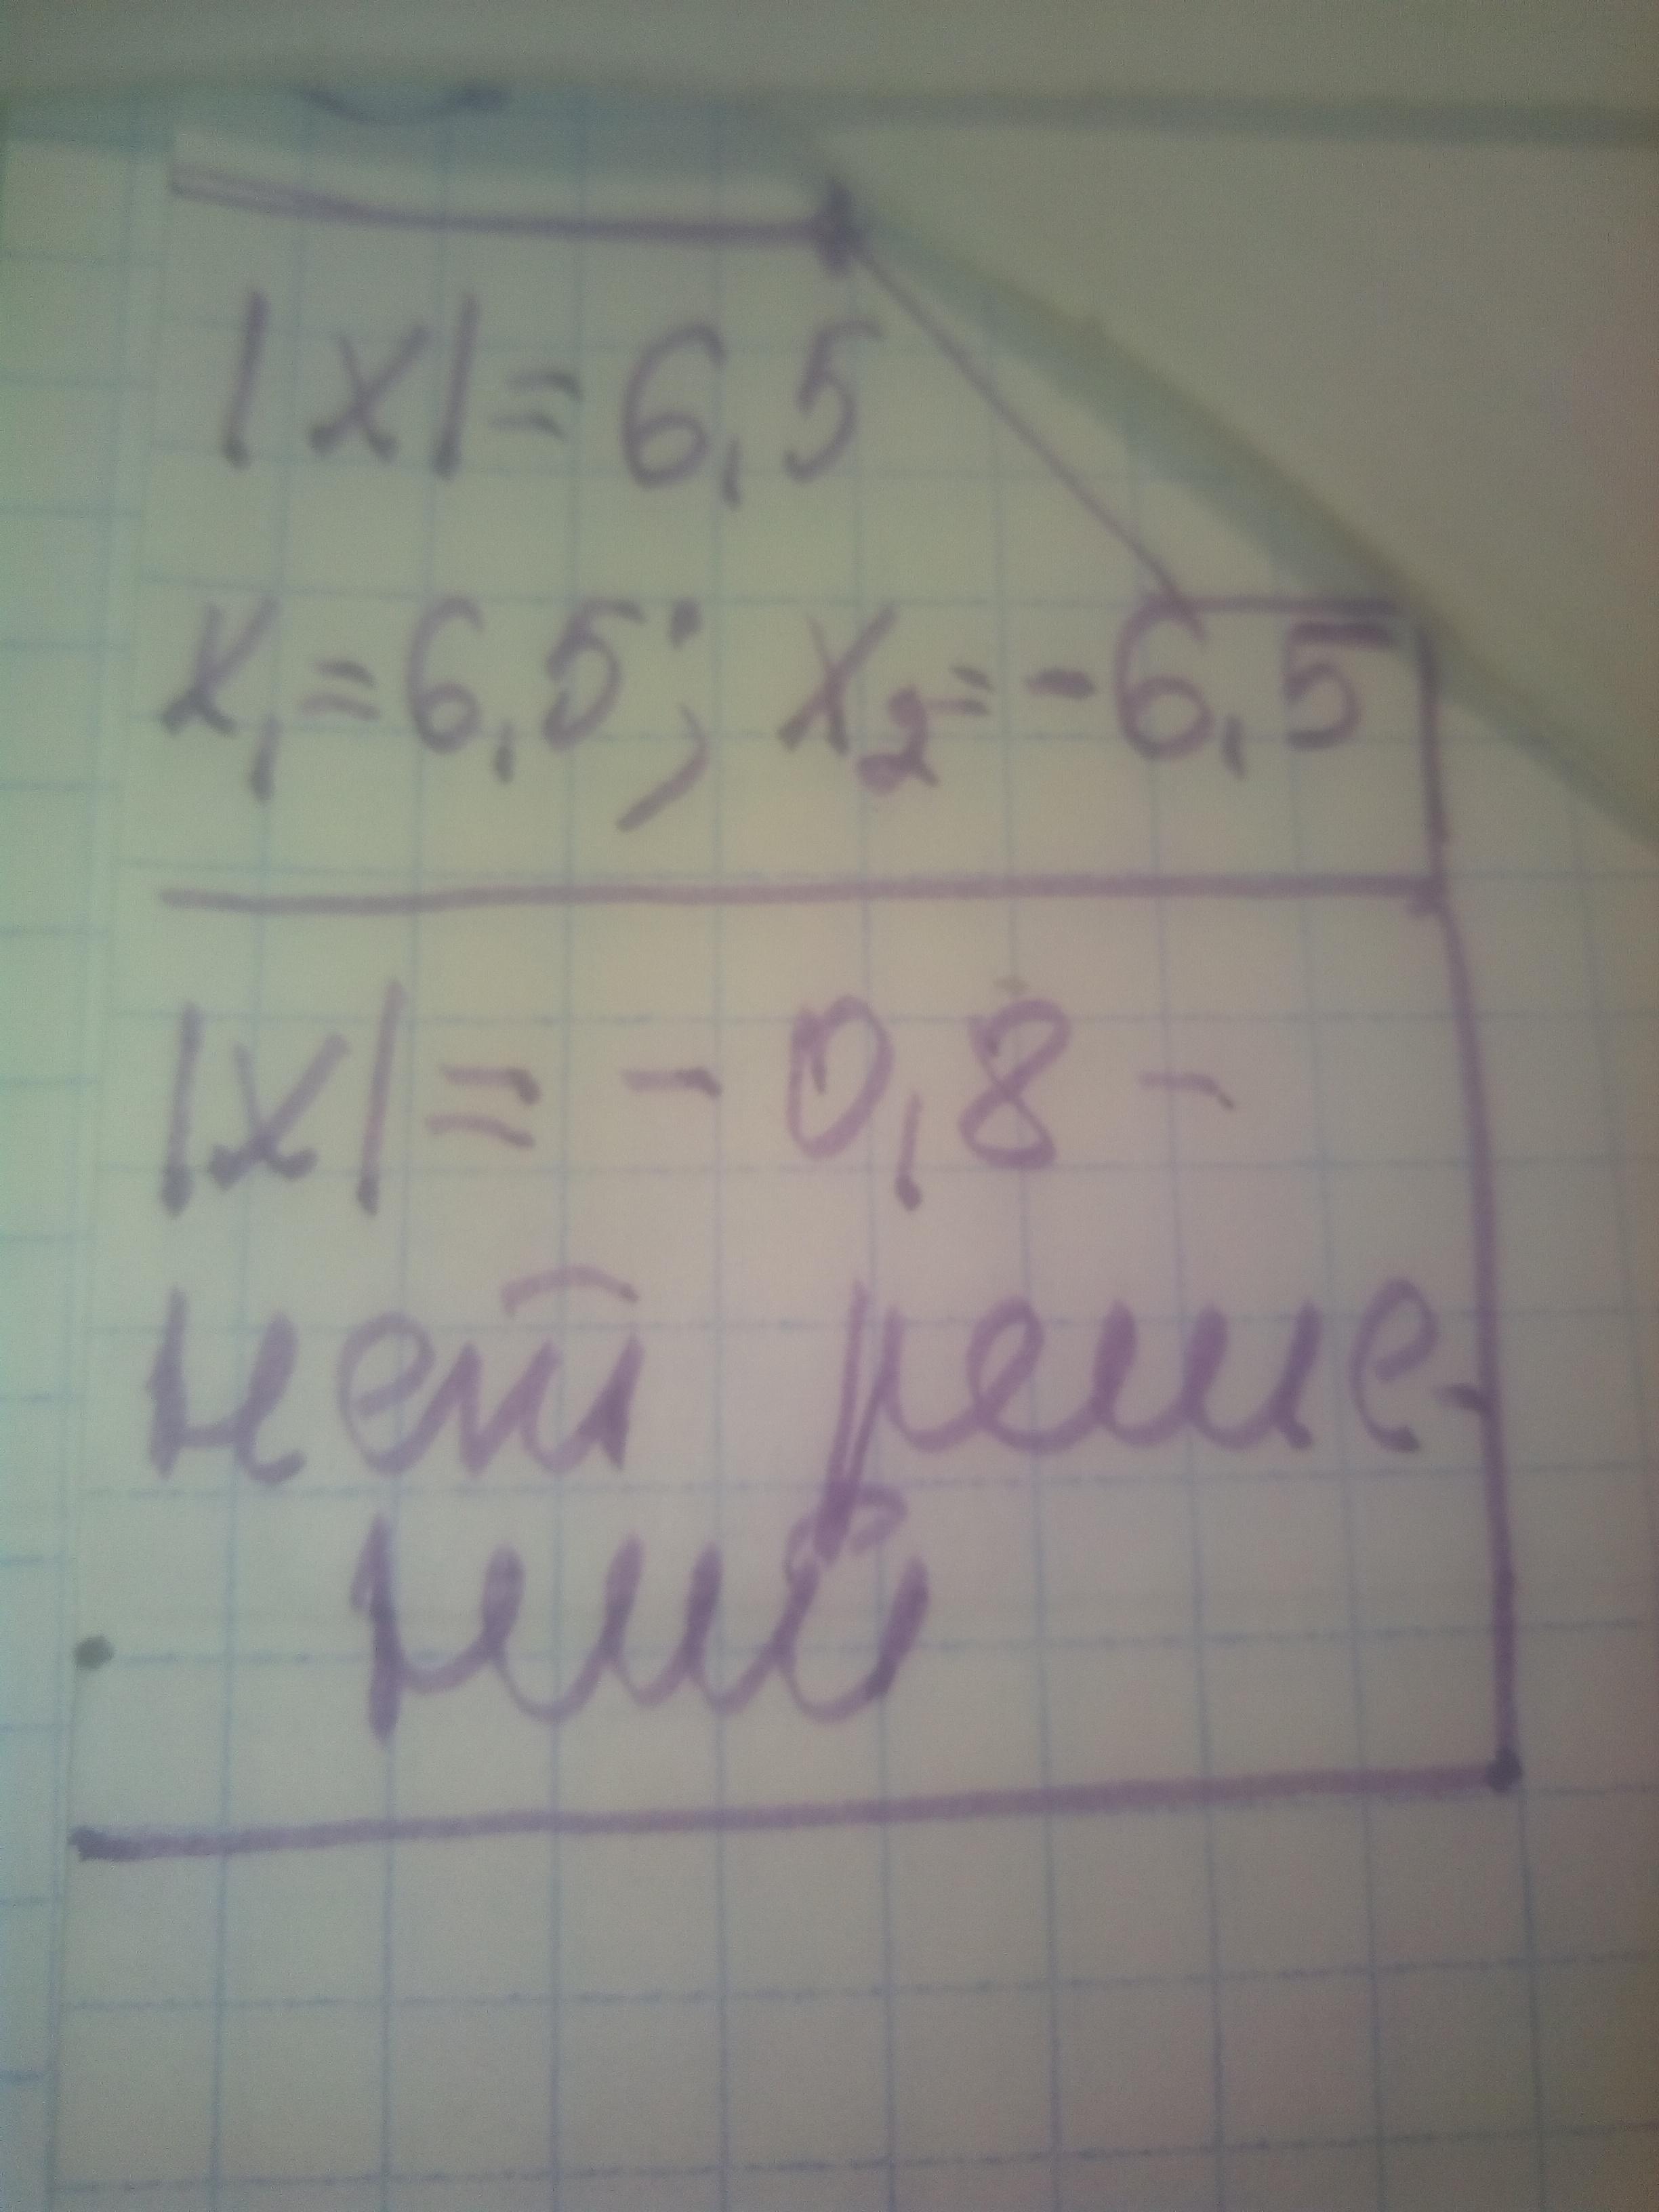 |x|=6,5
x₁=6,5; x₂=-6,5
|x|=-0,8-
нет реше-
ний